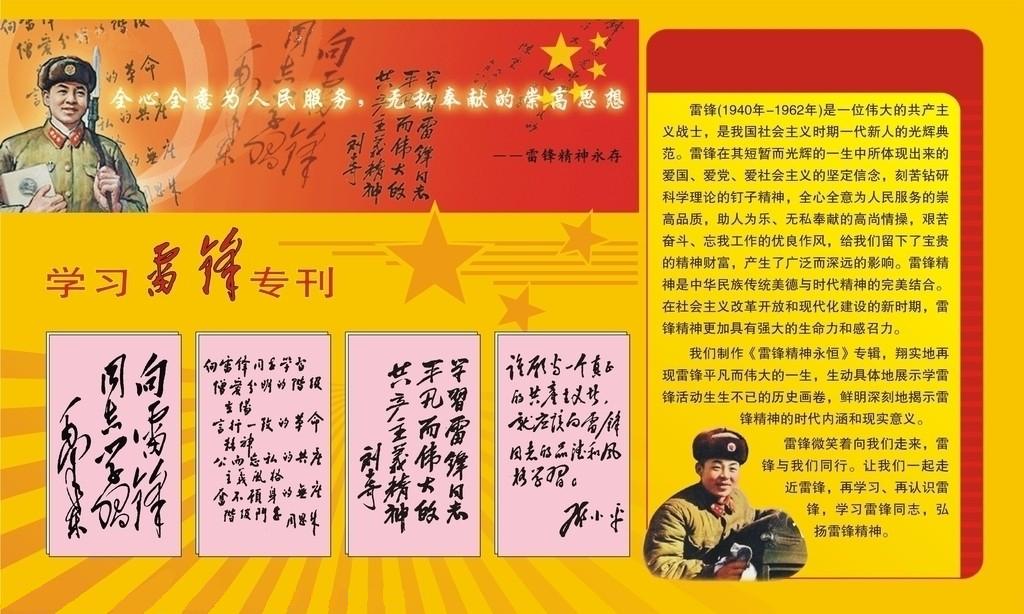 全心全意为人民服务，无私奉献的崇高思想
——雷锋精神永存
学习雷锋专刊
向雷锋
同志学习
毛泽东
向雷锋同志学习
憎爱分明的阶级
立场
言行一致的革命
精神
公而忘私的共产
主义风格
奋不顾身的无产
阶级斗志
周恩来
学习雷锋同志
平凡而伟大的
共产主义精神
刘少奇
谁愿当一个真正
的共产主义者，
就应该向雷锋
同志的品德和风
格学习。
邓小平
雷锋(1940年-1962年)是一位伟大的共产主
义战士，是我国社会主义时期一代新人的光辉典
范。雷锋在其短暂而光辉的一生中所体现出来的
爱国、爱党、爱社会主义的坚定信念，刻苦钻研
科学理论的钉子精神，全心全意为人民服务的崇
高品质，助人为乐、无私奉献的高尚情操，艰苦
奋斗、忘我工作的优良作风，给我们留下了宝贵
的精神财富，产生了广泛而深远的影响。雷锋精
神是中华民族传统美德与时代精神的完美结合。
在社会主义改革开放和现代化建设的新时期，雷
锋精神更加具有强大的生命力和感召力。
我们制作《雷锋精神永恒》专辑，翔实地再
现雷锋平凡而伟大的一生，生动具体地展示学雷
锋活动生生不已的历史画卷，鲜明深刻地揭示雷
锋精神的时代内涵和现实意义。
雷锋微笑着向我们走来，雷
锋与我们同行。让我们一起走
近雷锋，再学习、再认识雷
锋，学习雷锋同志，弘
扬雷锋精神。